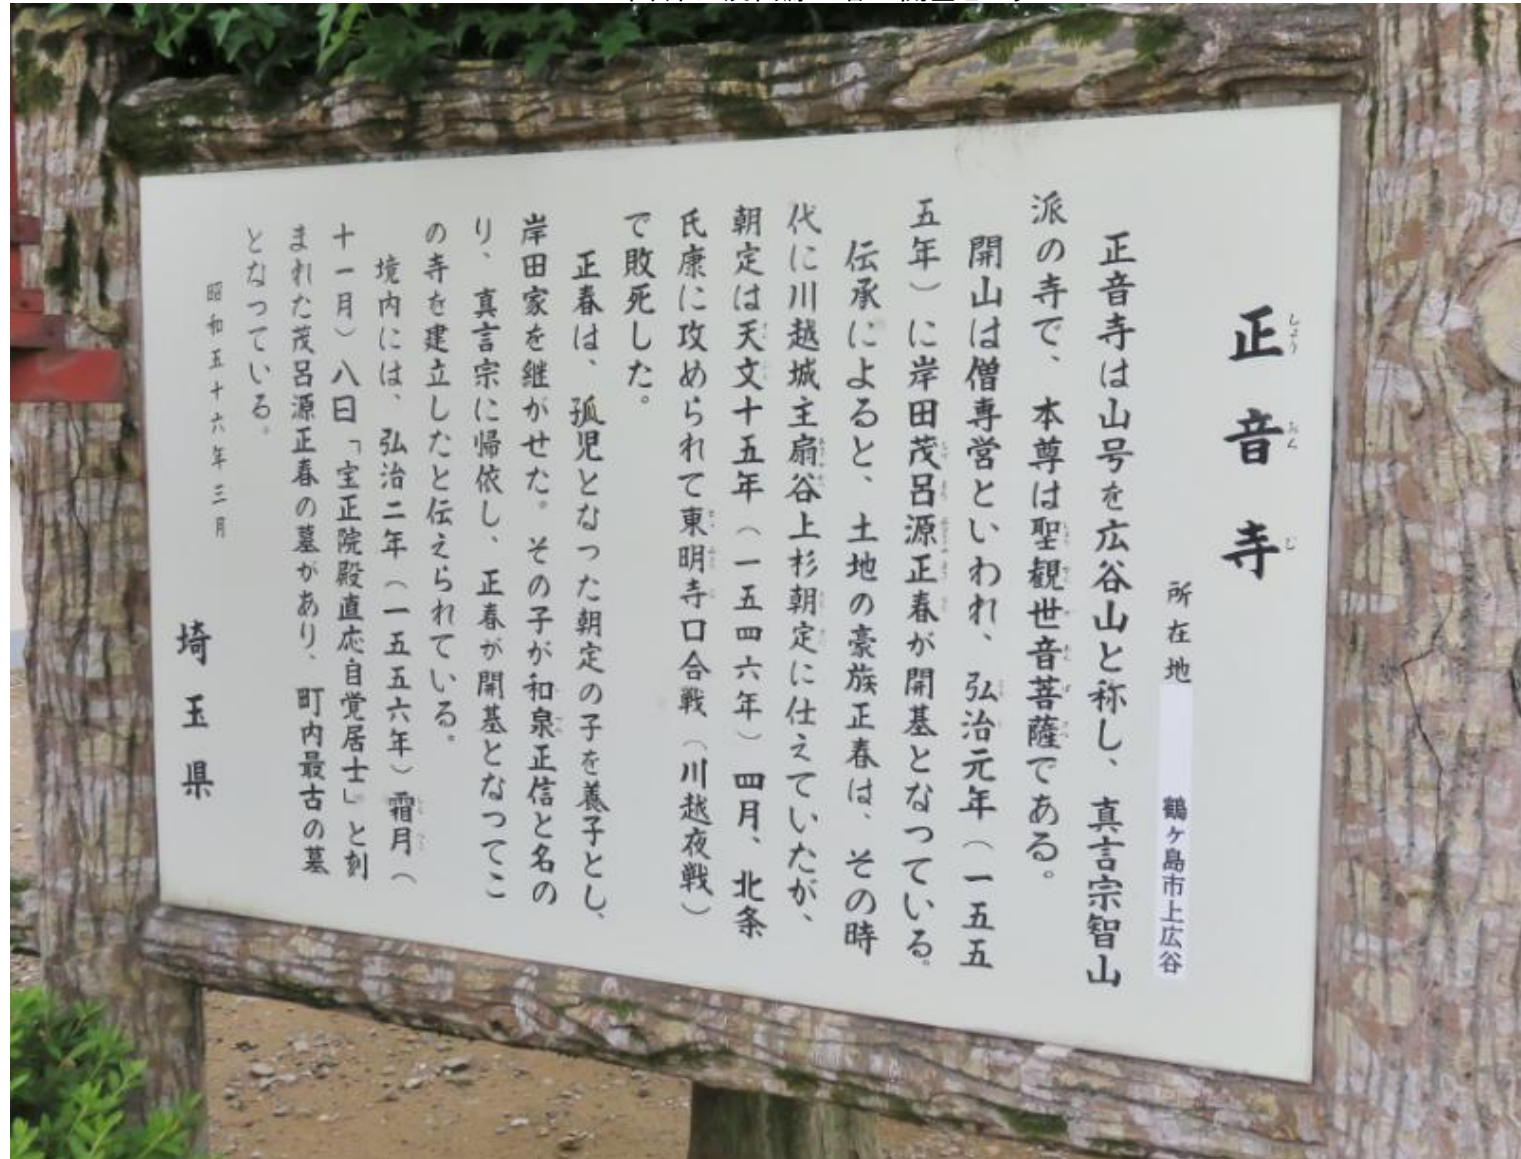 正音寺
所在地 鶴ヶ島市上広谷
正音寺は山号を広谷山と称し、真言宗智山
派の寺で、本尊は聖観世音菩薩である。
開山は僧専営といわれ、弘治元年（一五五
五年）に岸田茂呂源正春が開基となっている。
伝承によると、土地の豪族正春は、その時
代に川越城主扇谷上杉朝定に仕えていたが、
朝定は天文十五年（一五四六年）四月、北条
氏康に攻められて東明寺口合戦（川越夜戦）
で敗死した。
正春は、孤児となった朝定の子を養子とし、
岸田家を継がせた。その子が和泉正信と名の
り、真言宗に帰依し、正春が開基となってこ
の寺を建立したと伝えられている。
境内には、弘治二年（一五五六年）霜月（
十一月）八日「宝正院殿直応自覚居士」と刻
まれた茂呂源正春の墓があり、町内最古の墓
となっている。
昭和五十六年三月
埼玉県